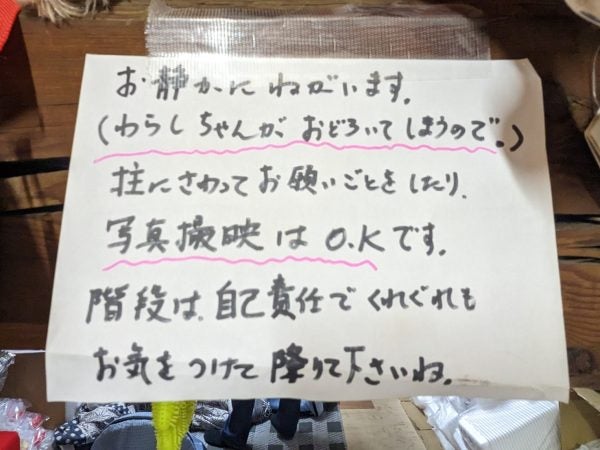 お静かにねがいます。
(わらしちゃんが おどろいてしまうので。)
柱にさわってお願いごとをしたり、
写真撮映は O.Kです。
階段は、自己責任でくれぐれも
お気をつけて降りて下さいね。